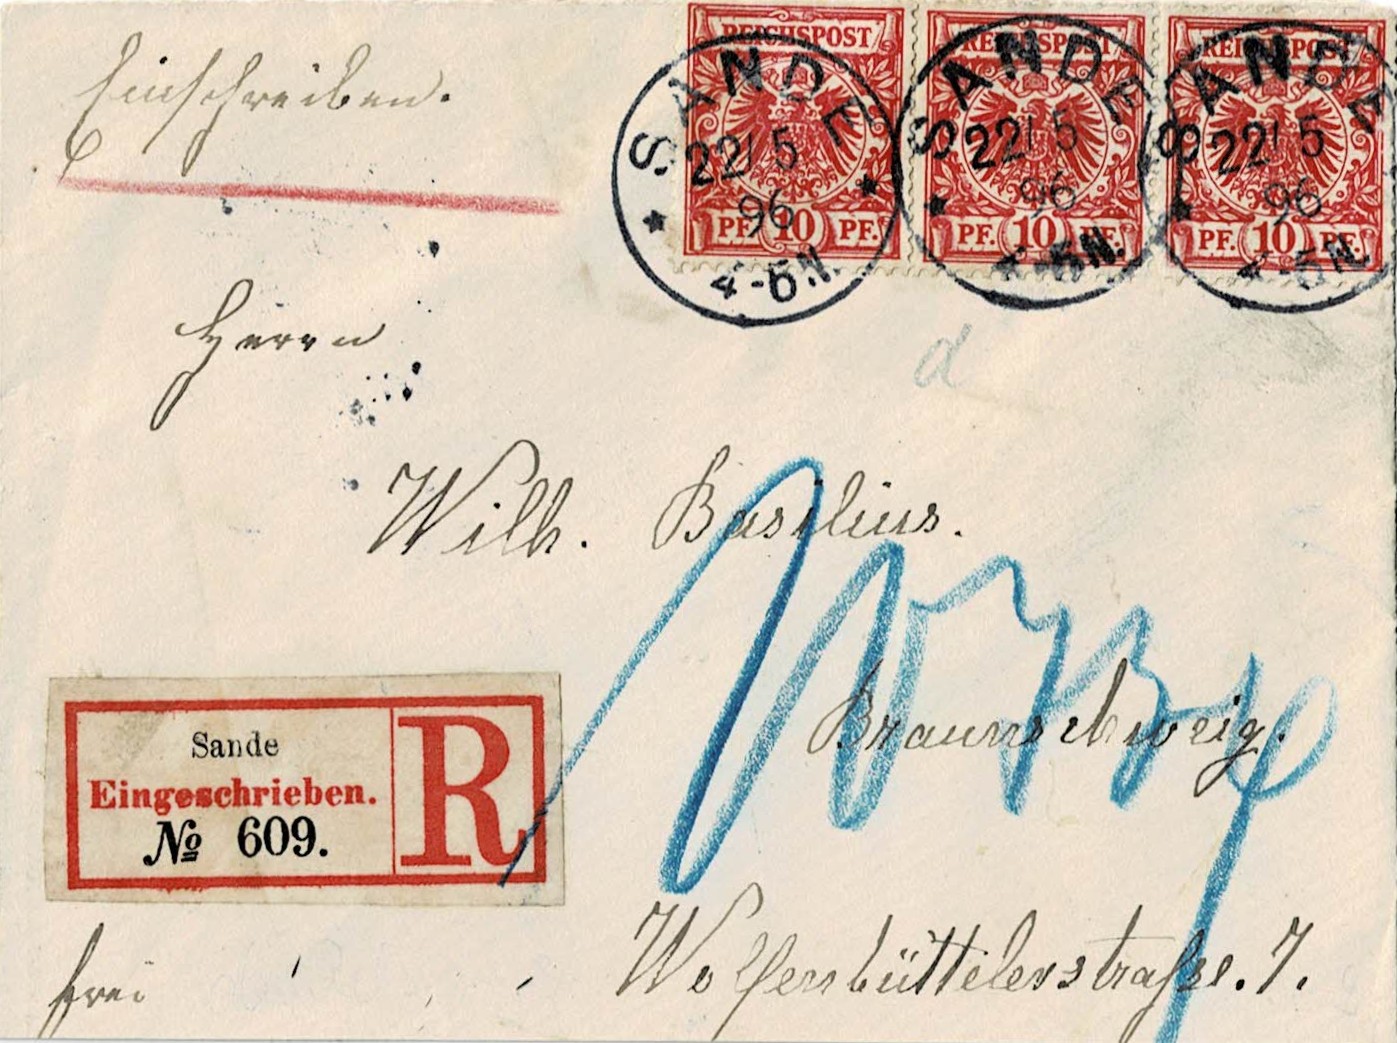 Einschreiben.
REICHSPOST REICHSPOST REICHSPOST
SANDE SANDE SANDE
22/5 22/5 22/5
96 96 96
PF. 10 PF. PF. 10 PF. PF. 10 PF.
4-5N. 4-5N. 4-5N.
Herrn
d
Wilh. Basilius.
Braunschweig.
Sande
Eingeschrieben.
№ 609.
R
Wolfenbüttelerstraße. 7.
frei